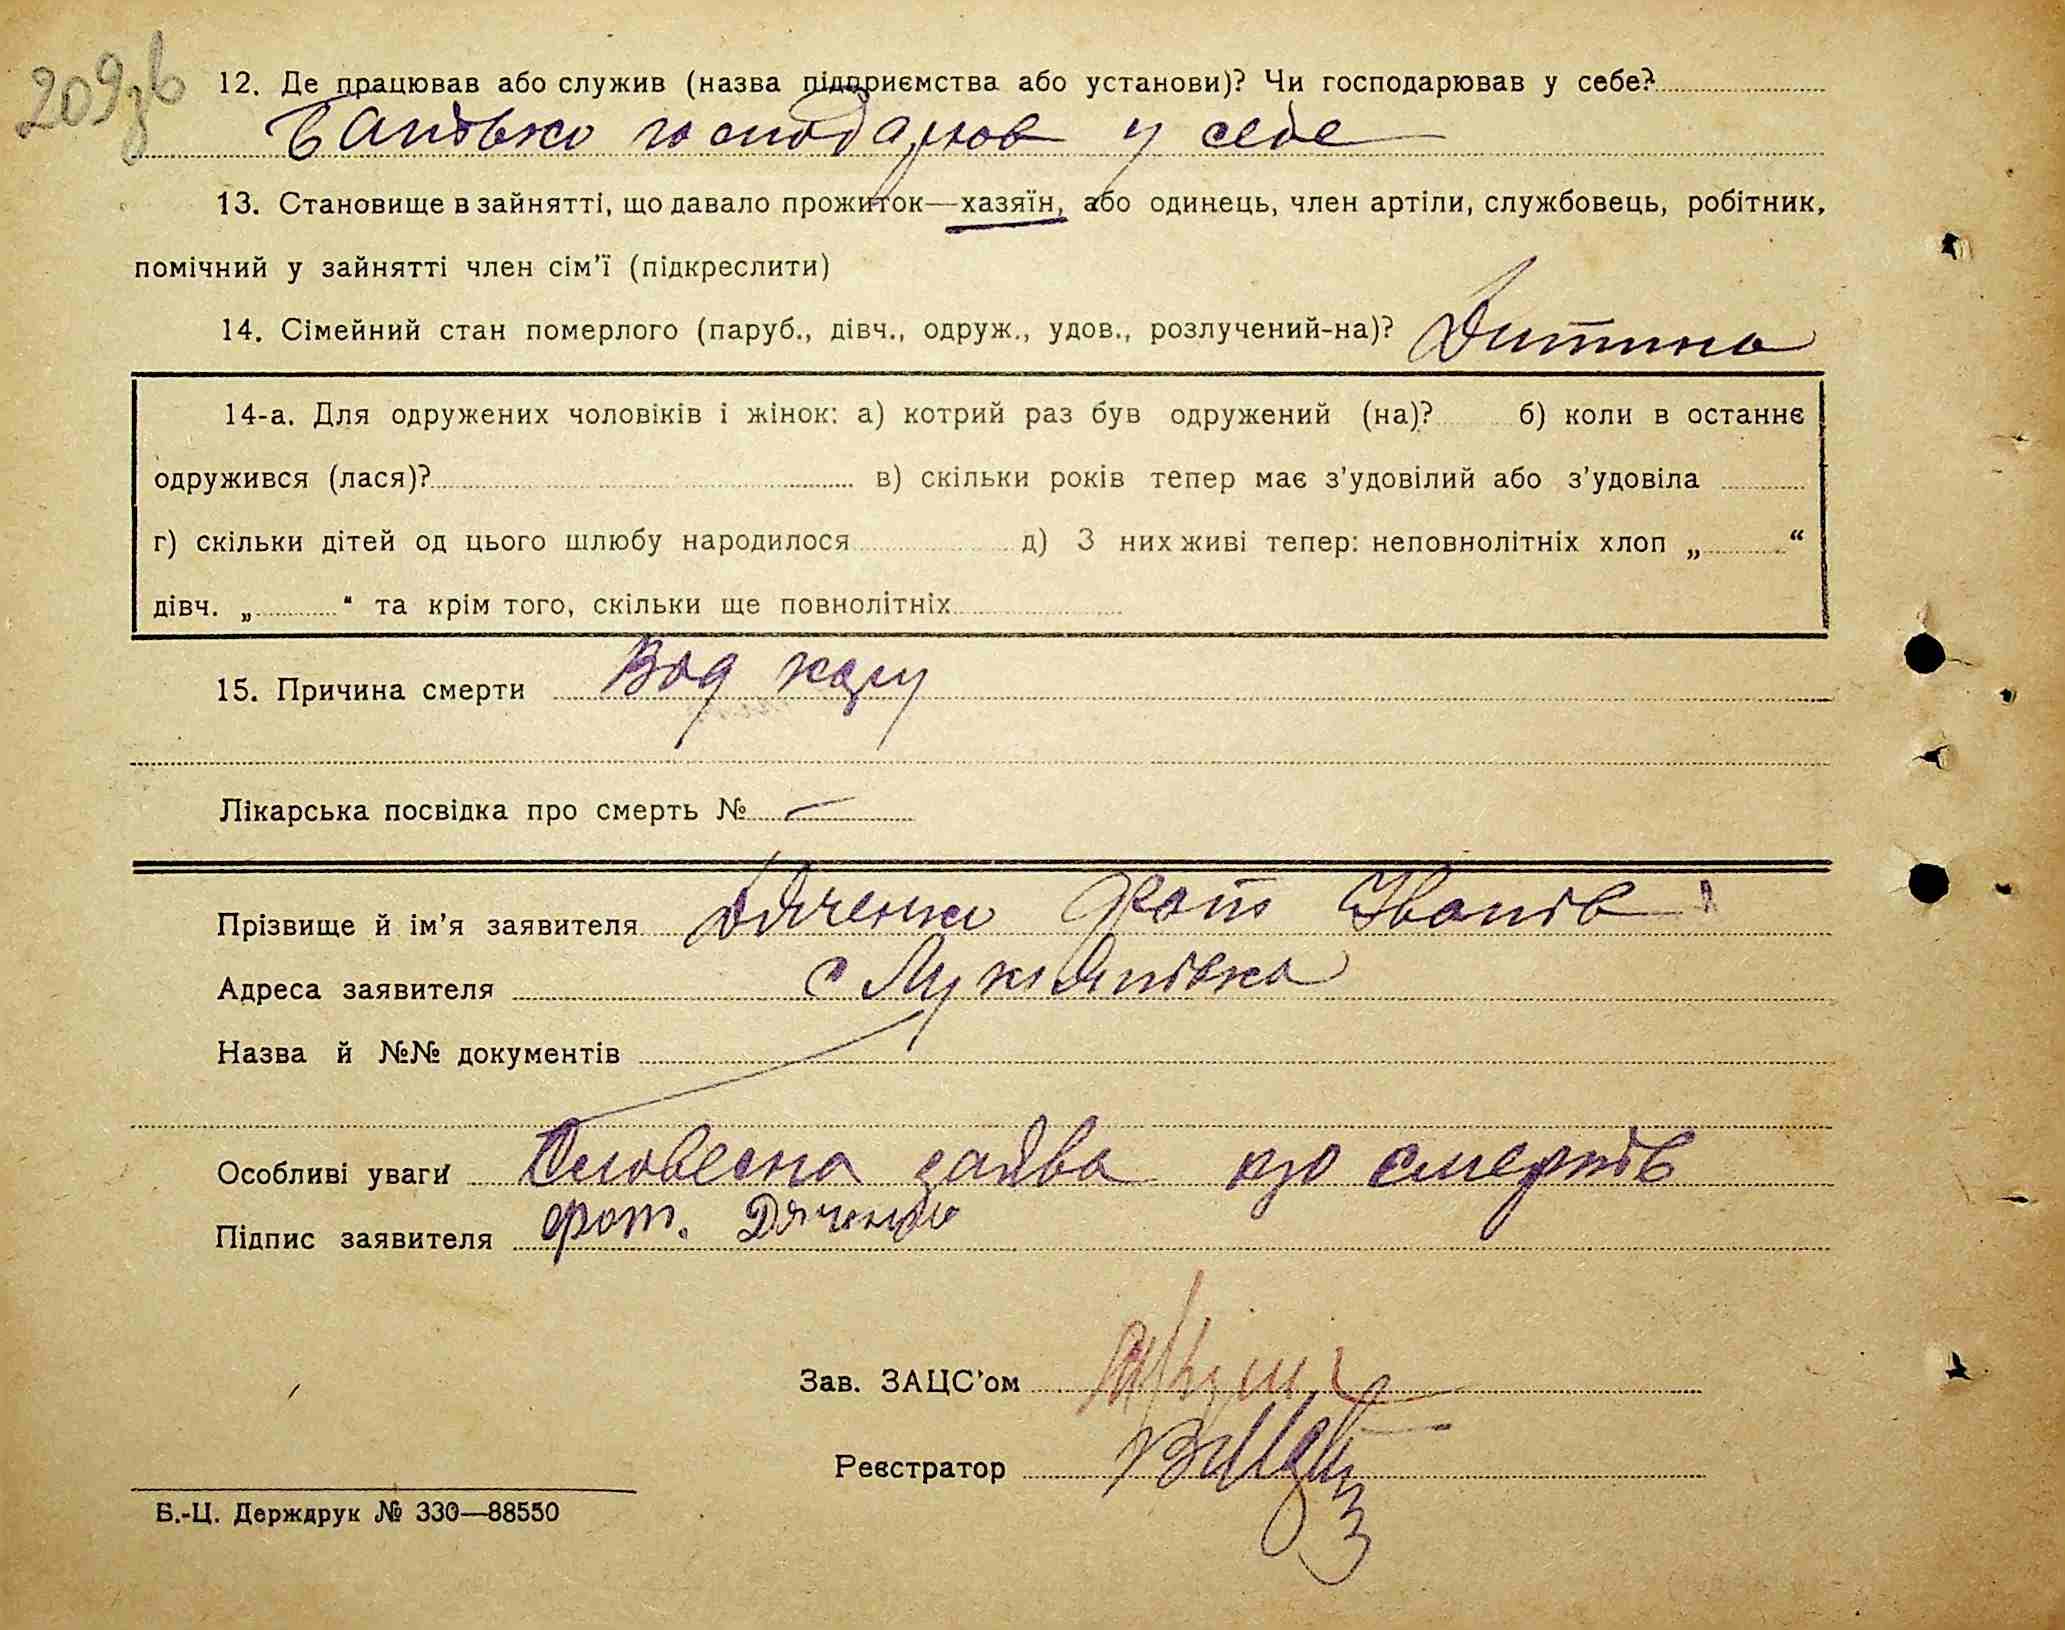 209зв
12. Де працював або служив (назва підприємства або установи)? Чи господарював у себе?
Батько господарюв у себе
13. Становище в зайнятті, що давало прожиток—хазяїн, або одинець, член артіли, службовець, робітник,
помічний у зайнятті член сім'ї (підкреслити)
14. Сімейний стан померлого (паруб., дівч., одруж., удов., розлучений-на)? Дитина
14-а. Для одружених чоловіків і жінок: а) котрий раз був одружений (на)? б) коли в останнє
одружився (лася)? в) скільки років тепер має з'удовілий або з'удовіла
г) скільки дітей од цього шлюбу народилося д) З них живі тепер: неповнолітніх хлоп „ “
дівч. „ “ та крім того, скільки ще повнолітніх
15. Причина смерти Від кору
Лікарська посвідка про смерть № —
Прізвище й ім'я заявителя Дяченко Іванів
Адреса заявителя с Лукянівка
Назва й №№ документів
Особливі уваги Словесна заява про смерть
Підпис заявителя Дяченко
Зав. ЗАЦС'ом
Реєстратор
Б.-Ц. Держдрук № 330—88550